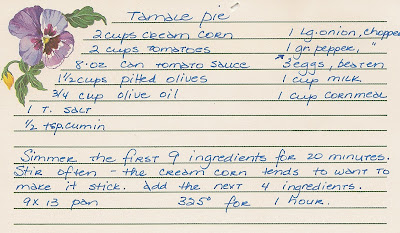 Tamale pie
2 cups cream corn 1 Lg. onion, chopped
2 cups tomatoes 1 gn. pepper, "
8-oz can tomato sauce 3 eggs, beaten
1 1/2 cups pitted olives 1 cup milk
3/4 cup olive oil 1 cup cornmeal
1 T. salt
1/2 tsp. cumin
Simmer the first 9 ingredients for 20 minutes.
Stir often - the cream corn tends to want to
make it stick. Add the next 4 ingredients.
9x13 pan 325° for 1 hour.